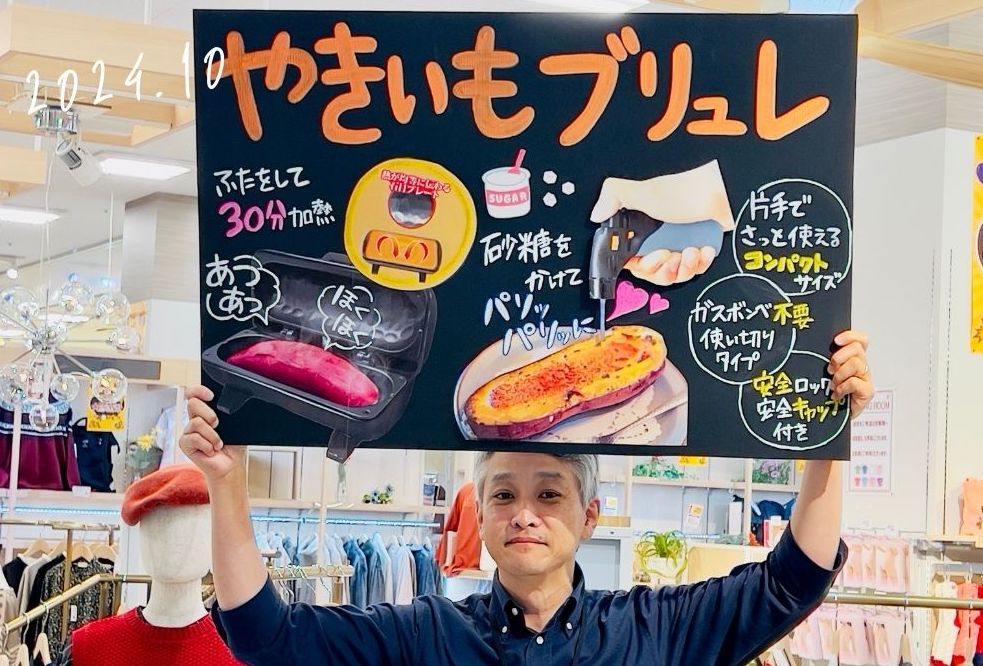 2024.10
やきいもブリュレ
ふたをして
30分加熱
あつ
あつ
ほく
ほく
熱が均等に伝わる
SUGAR
砂糖を
かけて
パリッ
パリッに
片手で
さっと使える
コンパクト
サイズ
ガスボンベ不要
使い切り
タイプ
安全ロック
安全キャップ
付き